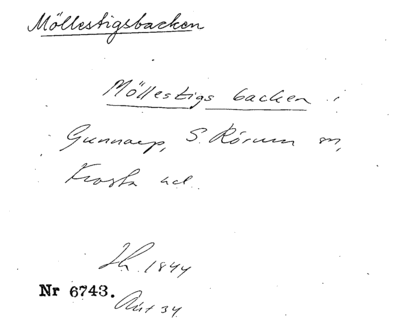 Möllestigsbacken
Möllestigs backen i
Gunnarp, S. Rörum sn,
Frosta hd.
1844
Nr 6743.